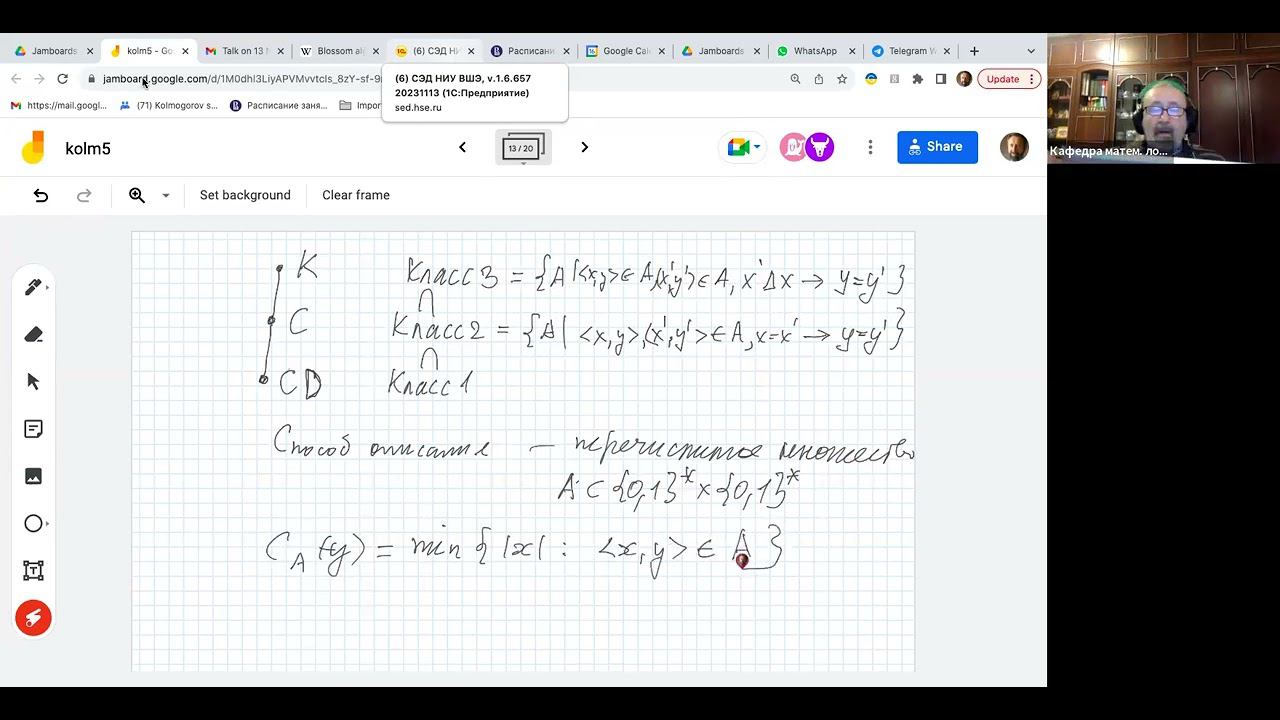 Jamboards
kolm5 - Go
Talk on 13 N
Blossom al
(6) СЭД НИ
Расписани
Google Cal
Jamboards
WhatsApp
Telegram W
jamboard.google.com/d/1M0dhI3LiyAPVMvvtcIs_8zY-sf-9
Update
(6) СЭД НИУ ВШЭ, v.1.6.657
20231113 (1С:Предприятие)
sed.hse.ru
https://mail.googl...
(71) Kolmogorov s...
Расписание заня...
Impor
kolm5
13 / 20
Share
Set background
Clear frame
Кафедра матем. ло...
K Класс 3 = {A | <x,y> ∈ A, <x',y'> ∈ A, x' Δ x → y=y'}
∩
C Класс 2 = {A | <x,y>, <x',y'> ∈ A, x=x' → y=y'}
∩
CD Класс 1
Способ описания – перечислимое множество
A ⊂ {0,1}* × {0,1}*
C_A(y) = min {|x| : <x,y> ∈ A}